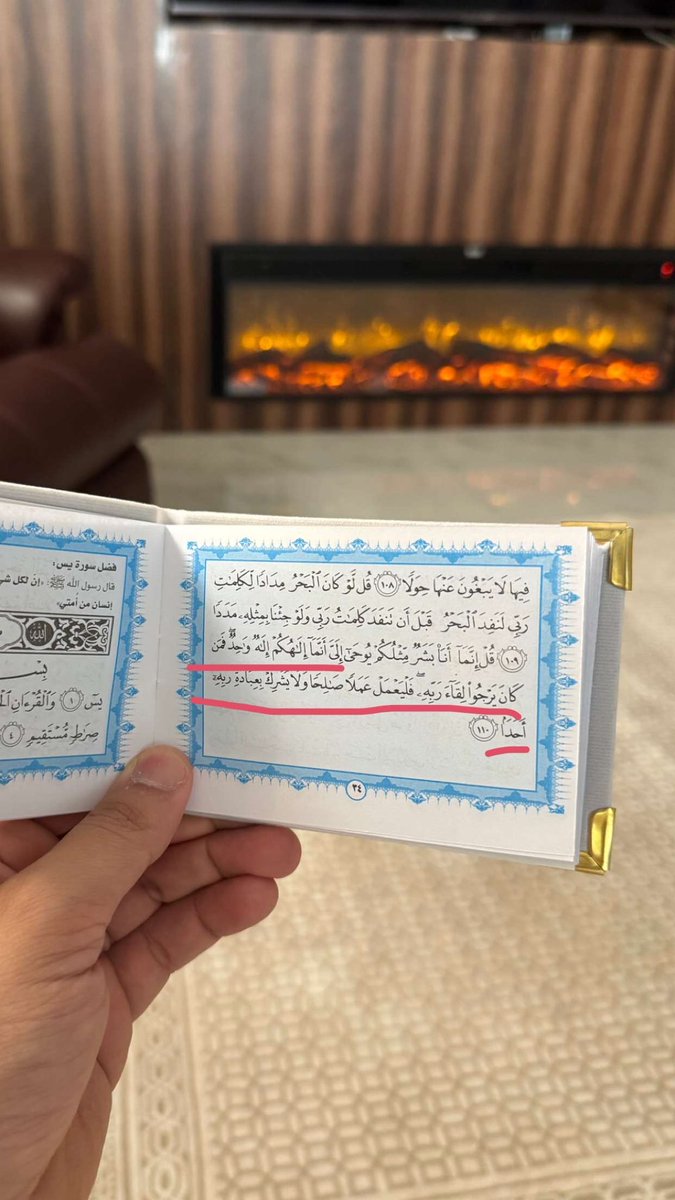 فِيهَا لَا يَبْغُونَ عَنْهَا حِوَلًا ١٠٨ قُل لَّوْ كَانَ ٱلْبَحْرُ مِدَادًا لِّكَلِمَٰتِ
رَبِّى لَنَفِدَ ٱلْبَحْرُ قَبْلَ أَن تَنفَدَ كَلِمَٰتُ رَبِّى وَلَوْ جِئْنَا بِمِثْلِهِۦ مَدَدًا
١٠٩ قُلْ إِنَّمَآ أَنَا۠ بَشَرٌ مِّثْلُكُمْ يُوحَىٰٓ إِلَىَّ أَنَّمَآ إِلَٰهُكُمْ إِلَٰهٌ وَٰحِدٌ ۖ فَمَن
كَانَ يَرْجُوا۟ لِقَآءَ رَبِّهِۦ فَلْيَعْمَلْ عَمَلًا صَٰلِحًا وَلَا يُشْرِكْ بِعِبَادَةِ رَبِّهِۦٓ
أَحَدًۢا ١١٠
٣٤
فضل سورة يس:
قال رسول الله ﷺ: «إن لكل
إنسان من أمتي.
يسٓ ١ وَٱلْقُرْءَانِ
صِرَٰطٍ مُّسْتَقِيمٍ ٤